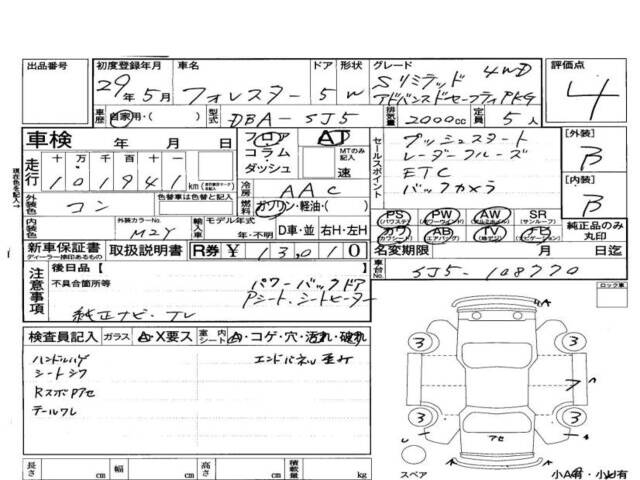 出品番号
初度登録年月 車名 ドア 形状 グレード 評価点
29年5月 フォレスター 5 W Sリミテッド 4WD
アドバンスドセーフティPKG
4
車歴 自家用・( ) 型式 DBA-SJ5 排気量 2000cc 定員 5人
車検 年 月 日
フロア AT
コラム・ダッシュ MTのみ記入 速
セールスポイント
プッシュスタート
レーダークルーズ
ETC
バックカメラ
[外装] B
[内装] B
現在色を記入→
走行 十万千百十一
101941km
冷房 AAC
外装色 コン 色替車は色替と記入
燃料 ガソリン・軽油・( )
内装色 外装カラーNo. M2Y
輸入車 モデル年式 年・不明 D車・並 右H・左H
PS (パワステ) PW (パワーウインド) AW (アルミホイル) SR (サンルーフ)
カワ (カワシート) AB (エアバッグ) TV (純正) FB (ナビゲーション)
純正品のみ丸印
新車保証書 ディーラー捺印あるもの 取扱説明書 R券 ¥ 13,010
名変期限 月 日迄
車台No. SJ5-108770
注意事項
後日品[ ]
不具合箇所等 パワーバックドア
Pシート、シートヒーター
純正ナビ・TV
ロック車
検査員記入 ガラス A・X要ス 室内シート A・コゲ・穴・汚れ・破れ
ハンドルハゲ エンドパネル歪み
シートシワ
RスポPアセ
テールワレ
A
3 3
7 ハ
3 3
アセ
スペア
小A有・小U有
長さ cm 幅 cm 高さ cm 積載量 kg